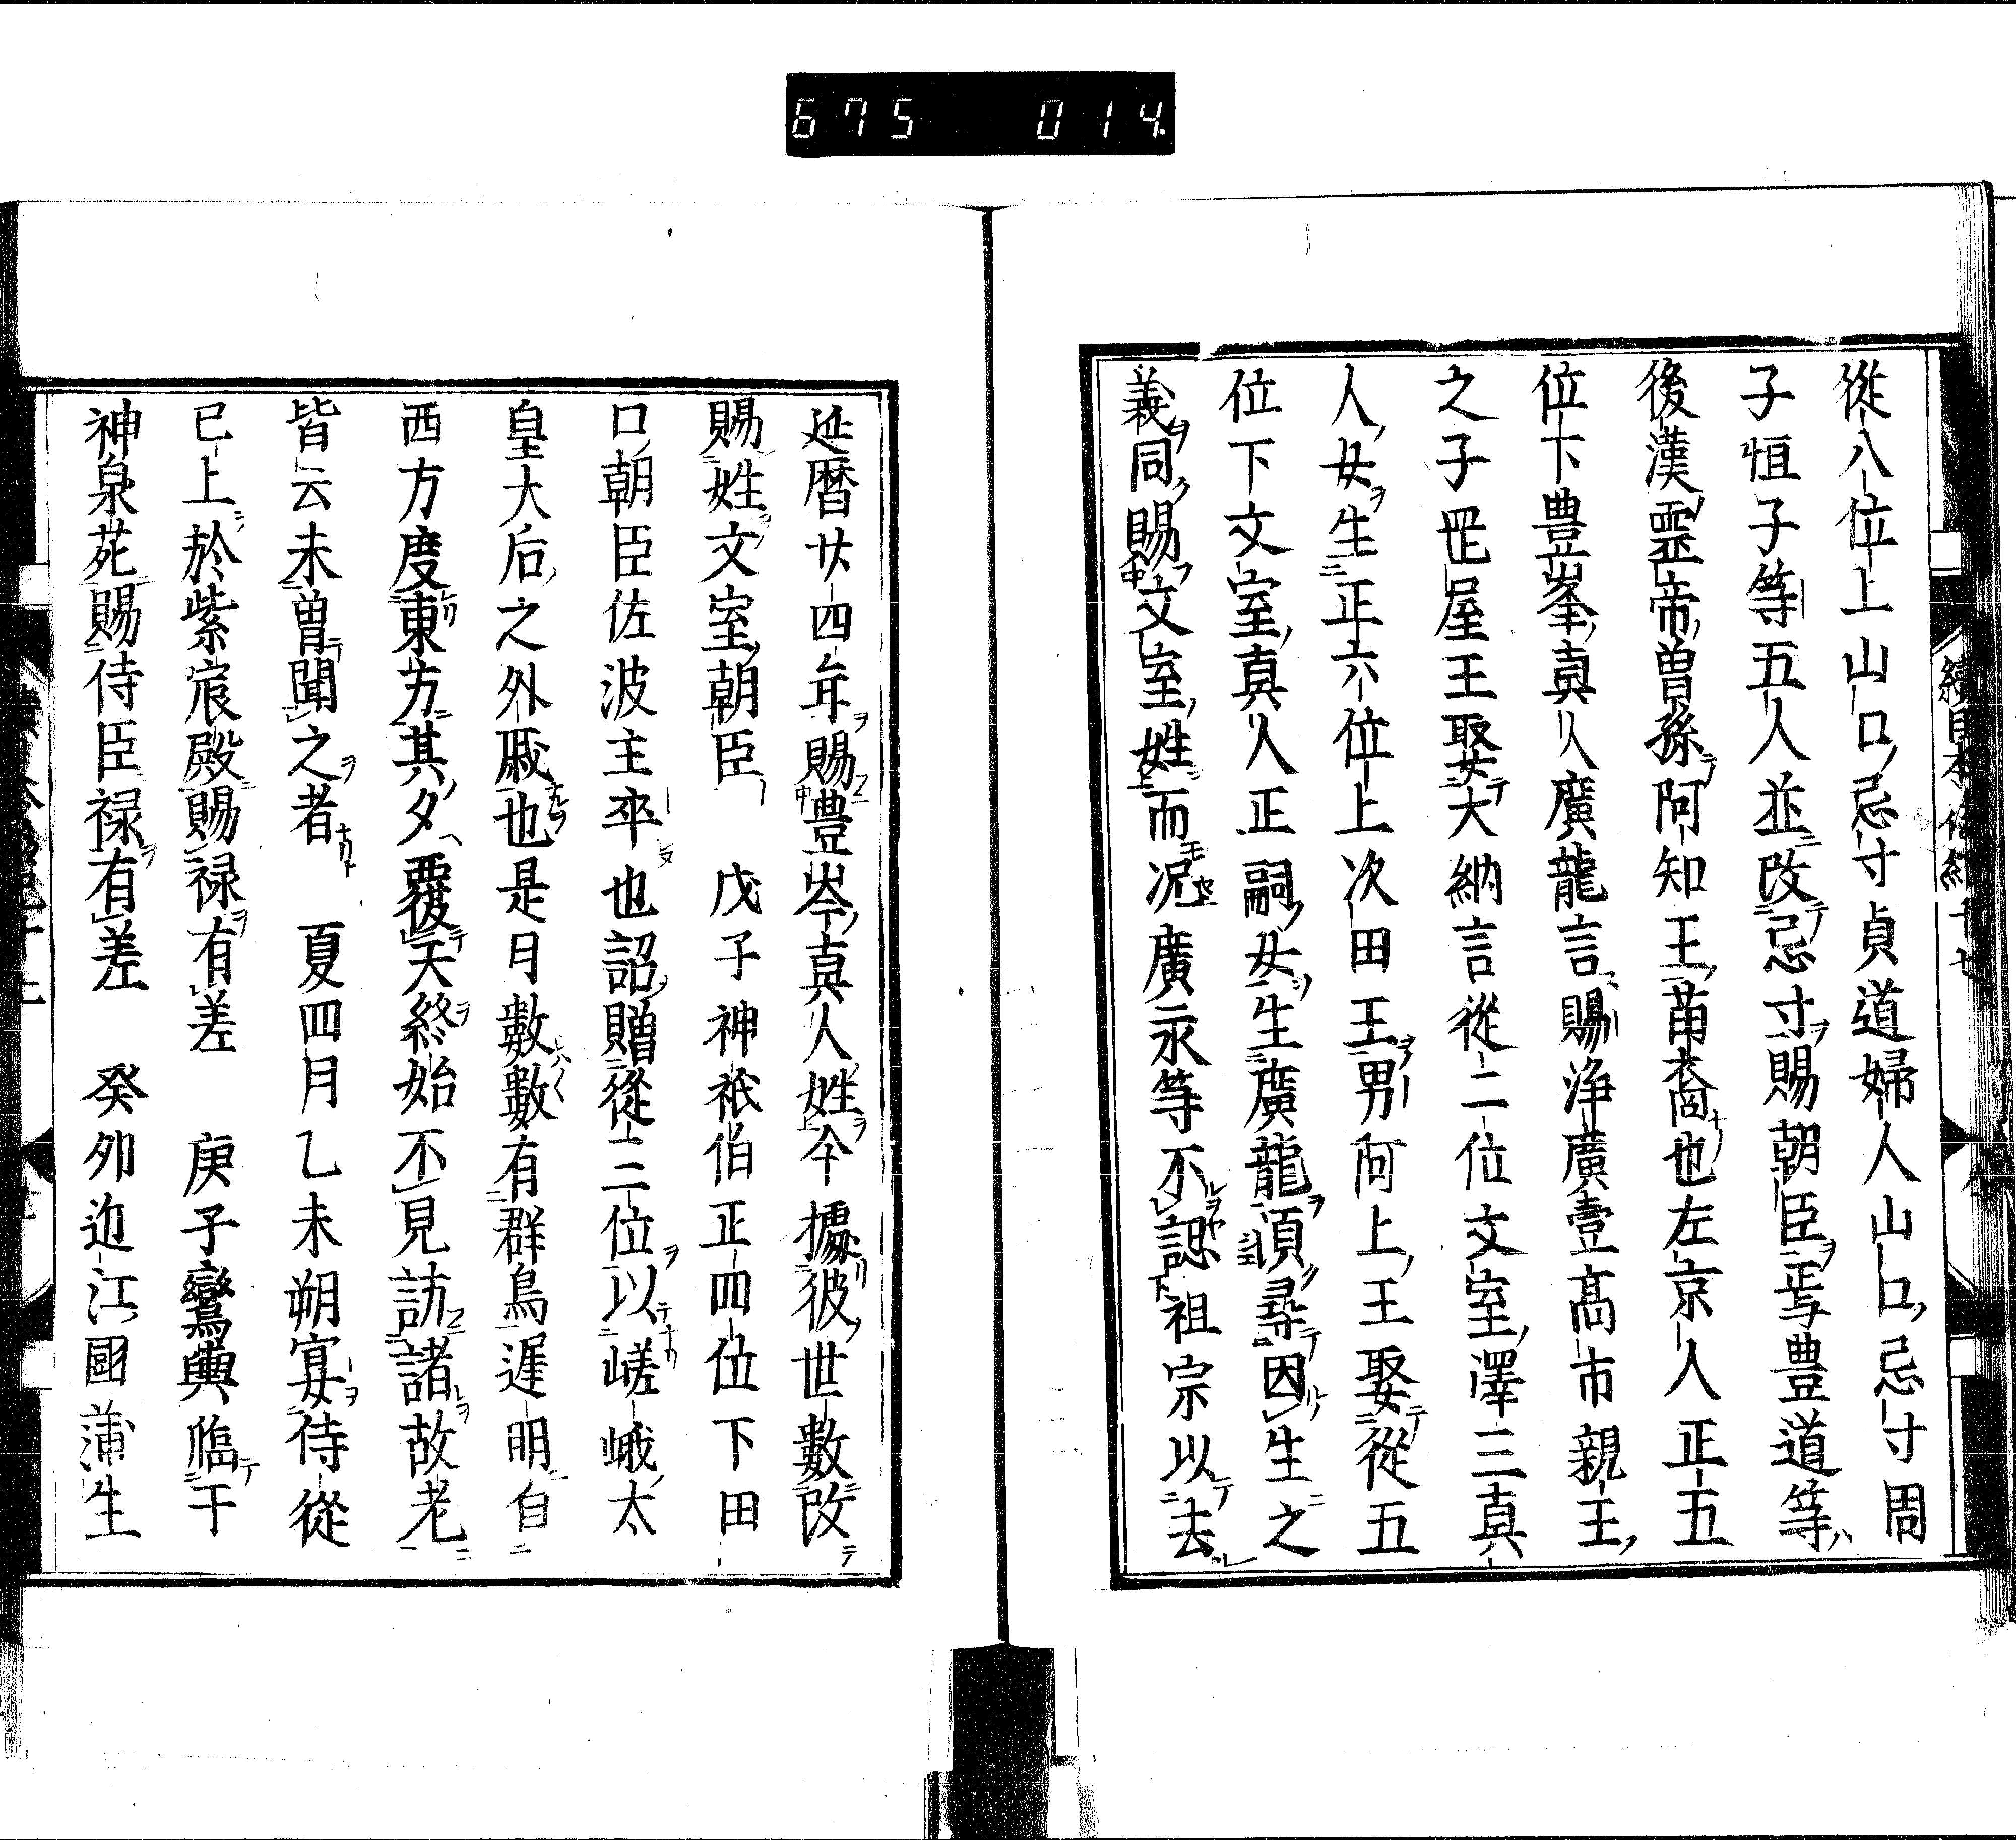 675 014
從八位上山口忌寸貞道婦人山口忌寸周
子恒子等五人並改忌寸賜朝臣焉豊道等
後漢靈帝曽孫阿知王苗裔也左京人正五
位下豊峯真人廣龍言賜浄廣壹髙市親王
之子長屋王娶大納言從二位文室浄三真
人女生正六位上次田王男阿上王娶從五
位下文室真人正嗣女生廣龍須尋因生之
義同賜文室姓而况廣永等不認祖宗以去
延暦廿四年賜豊岑真人姓今據彼世數改
賜姓文室朝臣　戊子神祇伯正四位下田
口朝臣佐波主卒也詔贈從三位以嵯峨太
皇大后之外戚也是月數數有群鳥遲明自
西方度東方其夕覆天終始不見訪諸故老
皆云未曽聞之者　夏四月乙未朔宴侍從
已上於紫宸殿賜禄有差　庚子鸞輿臨于
神泉苑賜侍臣禄有差　癸卯近江國蒲生